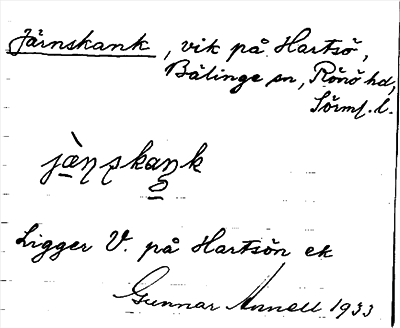 Järnskank, vik på Hartsö,
Bälinge sn, Rönö hd,
Sörml. l.
jæ̀ṇṣkaŋk
Ligger V. på Hartsön ek
Gunnar Annell 1933